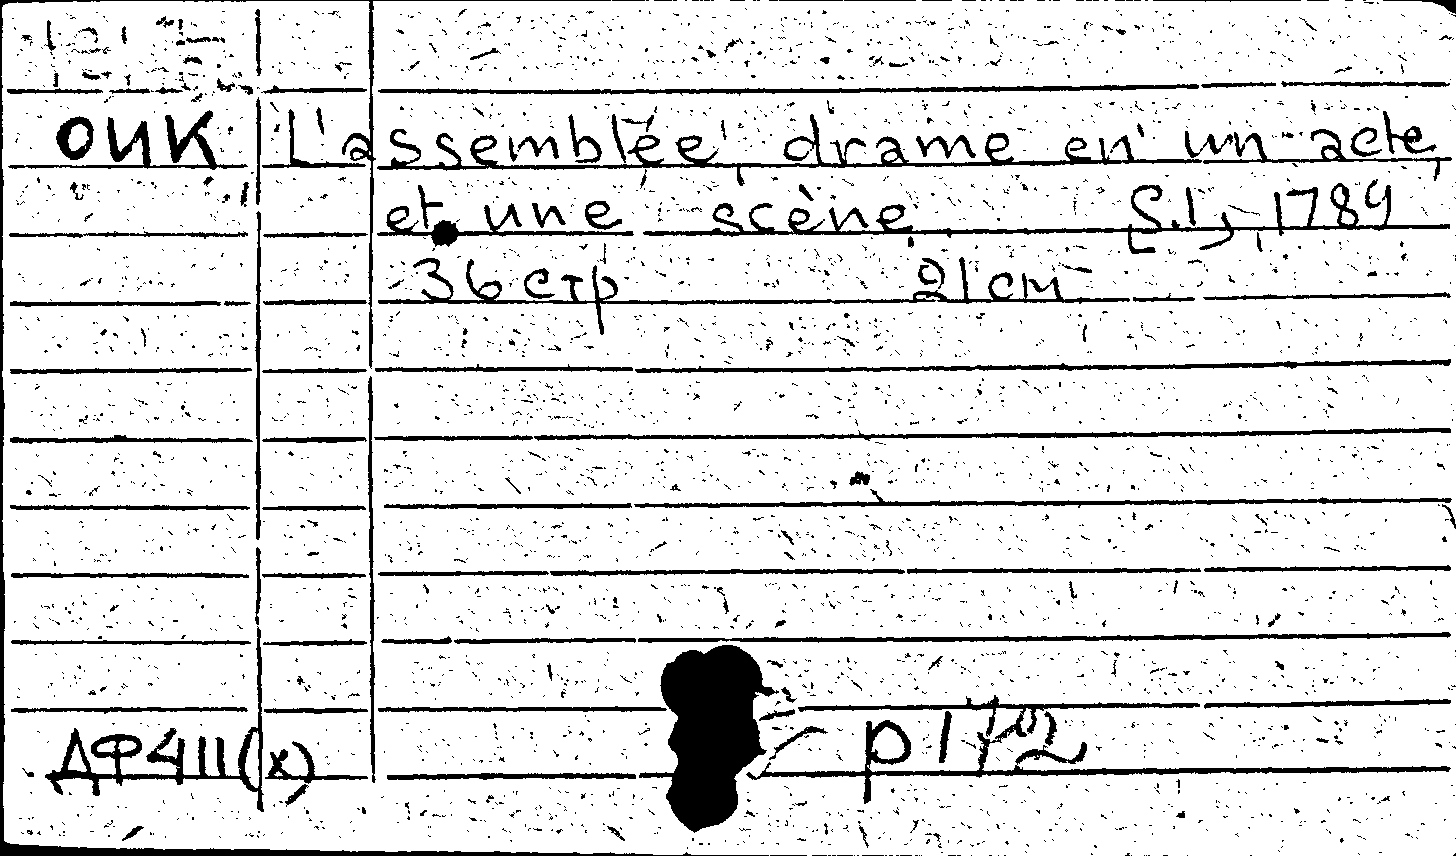 ОИК L'assemblée, drame en un acte,
et une scène. S.l., 1789
36 стр 21 см
ДФ4111(х) р 1702